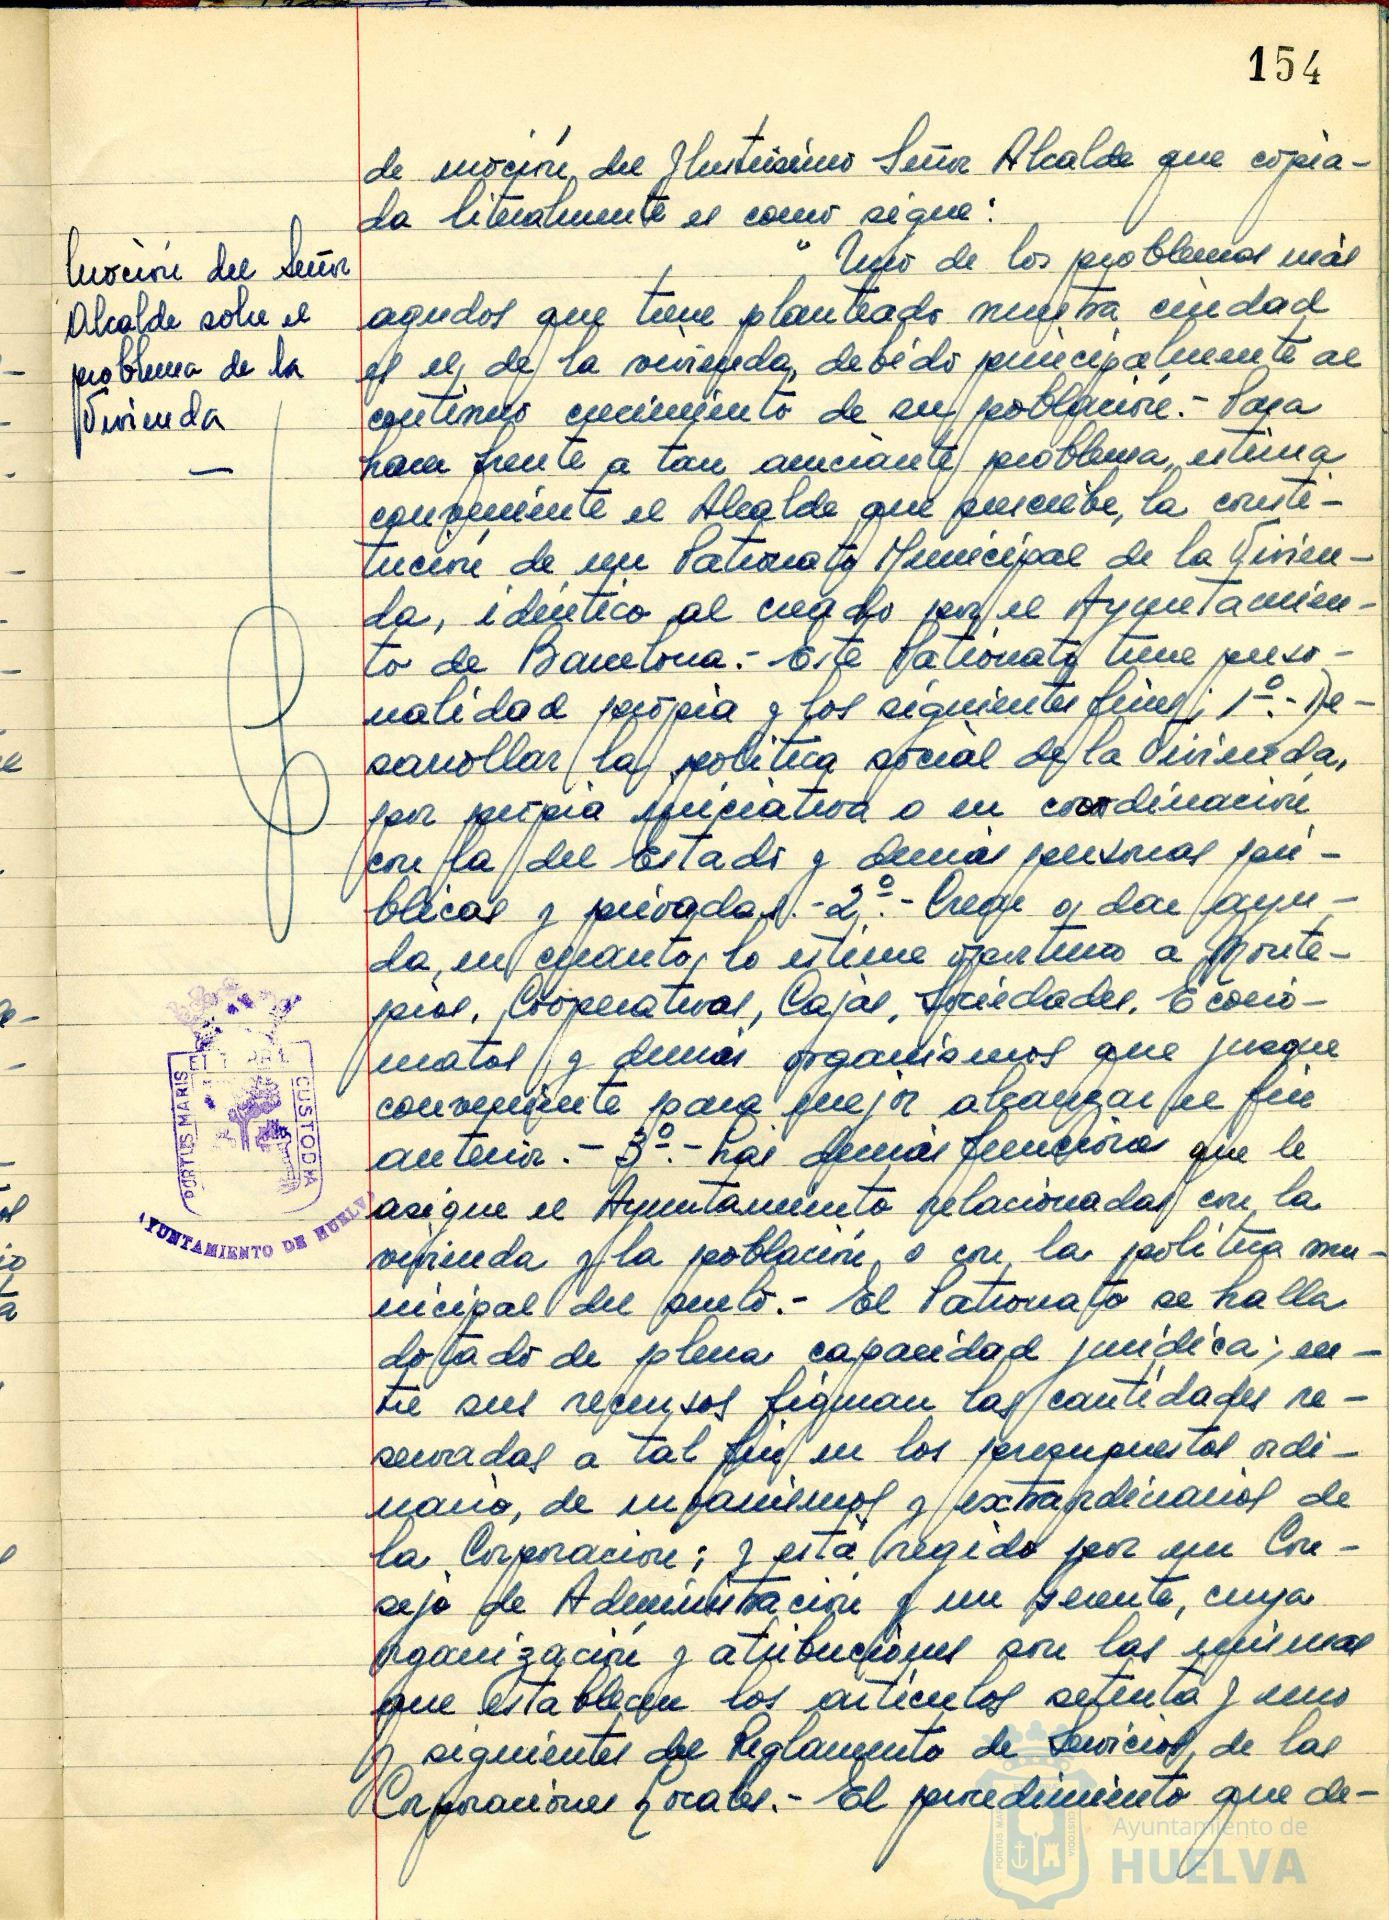 154
de moción del Ilustrísimo Señor Alcalde que copia-
da literalmente es como sigue:
Moción del Señor
Alcalde sobre el
problema de la
Vivienda
" Uno de los problemas más
agudos que tiene planteado nuestra ciudad
es el de la vivienda, debido principalmente al
continuo crecimiento de su población.- Para
hacer frente a tan acuciante problema, estima
conveniente el Alcalde que suscribe, la consti-
tución de un Patronato Municipal de la Vivien-
da, idéntico al creado por el Ayuntamien-
to de Barcelona.- Este Patronato tiene perso-
nalidad propia y los siguientes fines; 1º.- De-
sarrollar la política social de la Vivienda,
por propia iniciativa o en coordinación
con la del Estado y demás personas pú-
blicas y privadas.- 2º.- Crear y dar ayu-
da, en cuanto lo estime oportuno a Monte-
pios, Cooperativas, Cajas, Sociedades, Econo-
matos y demás organismos que juzgue
conveniente para mejor alcanzar el fin
anterior.- 3º.- Las demás funciones que le
asigne el Ayuntamiento relacionadas con la
vivienda y la población o con la política mu-
nicipal del suelo.- El Patronato se halla
dotado de plena capacidad jurídica; en-
tre sus recursos figuran las cantidades re-
servadas a tal fin en los presupuestos ordi-
nario, de urbanismos y extraordinarios de
la Corporación; y está regido por un Con-
sejo de Administración y un gerente, cuya
organización y atribuciones son las mismas
que establecen los artículos setenta y uno
y siguientes del Reglamento de Servicios de las
Corporaciones Locales.- El procedimiento que de-
PORTUS MARIS
CUSTODIA
AYUNTAMIENTO DE HUELVA
PORTUS MARIS
CUSTODIA
Ayuntamiento de
HUELVA